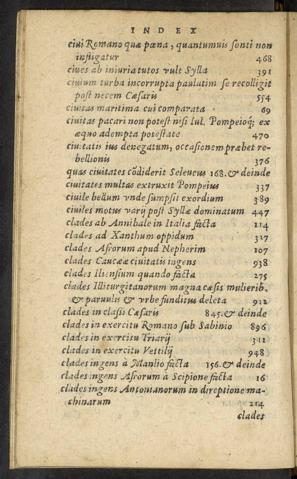 INDEX
ciui Romano quæ pœna, quantumuis sonti non
infligatur 468
ciues ab iniuria tutos vult Sylla 391
ciuium turba incorrupta paulatim se recolligit
post necem Cæsaris 554
ciuitas maritima cui comparata 69
ciuitas pacari non potest nisi Iul. Pompeioq; ex
æquo adempta potestate 470
ciuitatis ius denegatum, occasionem præbet re-
bellionis 376
quas ciuitates cōdiderit Seleucus 168. & deinde
ciuitates multas extruxit Pompeius 337
ciuile bellum vnde sumpsit exordium 389
ciuiles motus varij post Syllæ dominatum 447
clades ab Annibale in Italia facta 214
clades ad Xanthum oppidum 327
clades Afrorum apud Nepherim 107
clades Caucææ ciuitatis ingens 938
clades Iliensium quando facta 275
clades Illiturgitanorum magna cæsis mulierib.
& paruulis & vrbe funditus deleta 912
clades in classi Cæsaris 845. & deinde
clades in exercitu Romano sub Sabinio 896
clades in exercitu Triarij 312
clades in exercitu Vettilij 948
clades ingens à Manlio facta 156. & deinde
clades ingens Afrorum à Scipione facta 16
clades ingens Antonianorum in direptione ma-
chinarum 214
clades